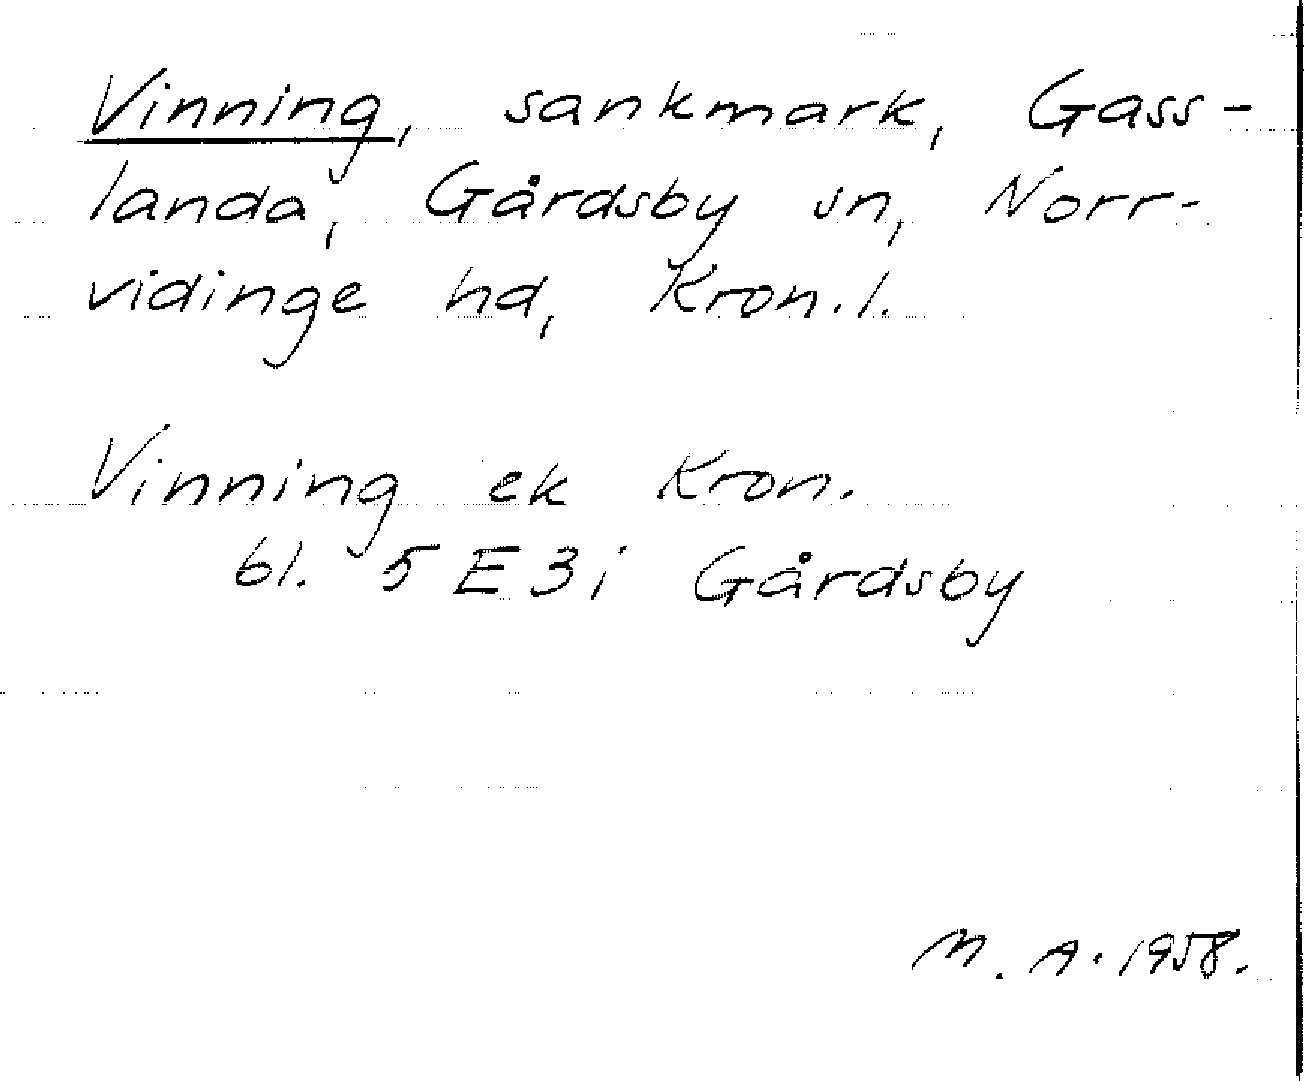 Vinning, sankmark, Gass-
landa, Gårdsby sn, Norr-
vidinge hd, Kron.l.
Vinning ek Kron.
bl. 5 E 3 i Gårdsby
M. A. 1958.